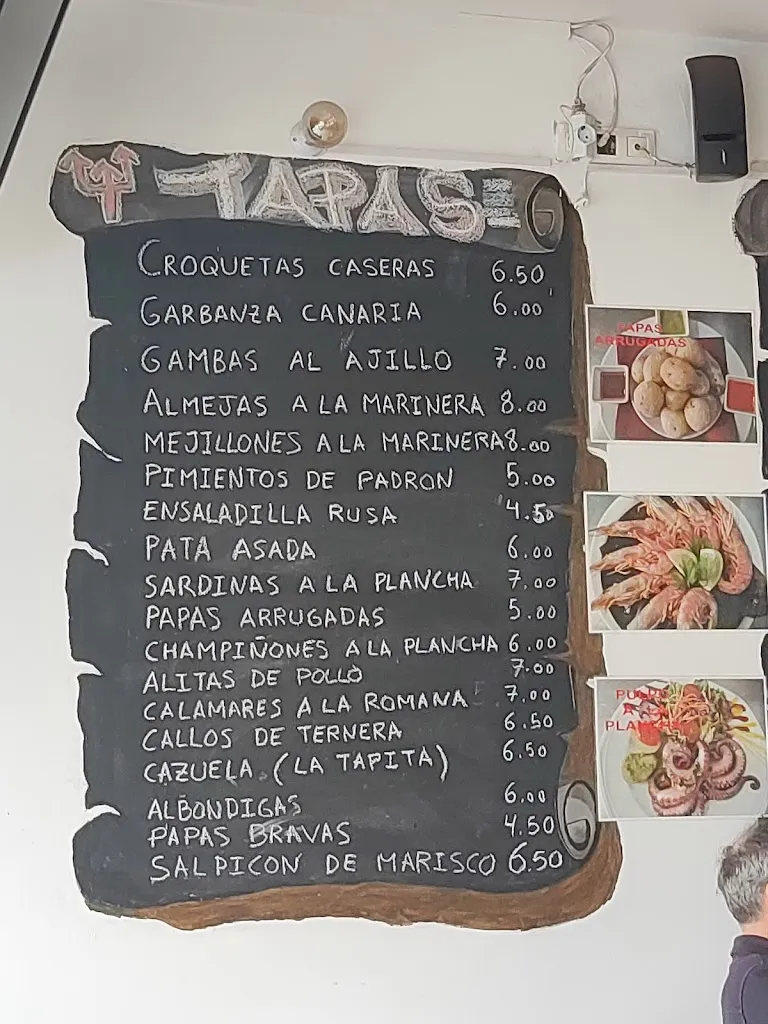 TAPAS
CROQUETAS CASERAS 6.50
GARBANZA CANARIA 6.00
GAMBAS AL AJILLO 7.00
ALMEJAS A LA MARINERA 8.00
MEJILLONES A LA MARINERA 8.00
PIMIENTOS DE PADRON 5.00
ENSALADILLA RUSA 4.50
PATA ASADA 6.00
SARDINAS A LA PLANCHA 7.00
PAPAS ARRUGADAS 5.00
CHAMPIÑONES A LA PLANCHA 6.00
ALITAS DE POLLO 7.00
CALAMARES A LA ROMANA 7.00
CALLOS DE TERNERA 6.50
CAZUELA (LA TAPITA) 6.50
ALBONDIGAS 6.00
PAPAS BRAVAS 4.50
SALPICON DE MARISCO 6.50
PAPAS
ARRUGADAS